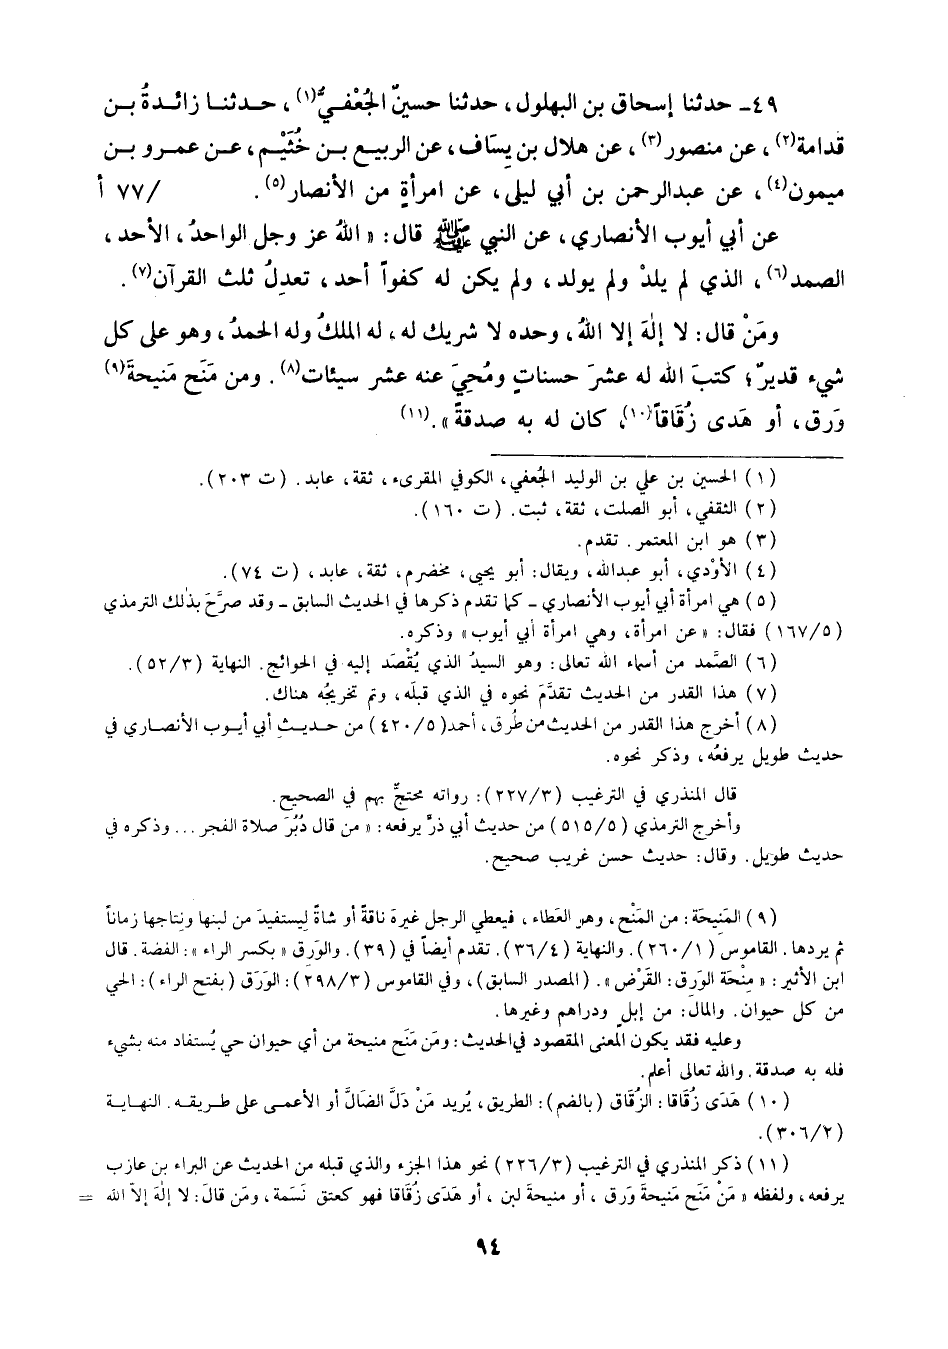 ٤٩ـ حدثنا إسحاق بن البهلول، حدثنا حسينٌ الجُعْفيُّ(١)، حدثنا زائدةُ بن
قدامة(٢)، عن منصور(٣)، عن هلال بن يِسَاف، عن الربيع بن خُثَيْم، عن عمرو بن
ميمون(٤)، عن عبدالرحمن بن أبي ليلى، عن امرأةٍ من الأنصار(٥). /٧٧ أ
عن أبي أيوب الأنصاري، عن النبي ﷺ قال: « اللهُ عز وجل الواحدُ، الأحد،
الصمد(٦)، الذي لم يلدْ ولم يولد، ولم يكن له كفواً أحد، تعدلُ ثلث القرآن(٧).
ومَنْ قال: لا إلٰهَ إلا اللهُ، وحده لا شريك له، له الملكُ وله الحمدُ، وهو على كل
شيء قديرٌ؛ كتبَ الله له عشرَ حسناتٍ ومُحِيَ عنه عشر سيئات(٨). ومن مَنَح مَنيحةَ(٩)
وَرِق، أو هَدى زُقَاقاً(١٠)، كان له به صدقةً».(١١)
(١) الحسين بن علي بن الوليد الجُعفي، الكوفي المقرىء، ثقة، عابد. (ت ٢٠٣).
(٢) الثقفي، أبو الصلت، ثقة، ثبت. (ت ١٦٠).
(٣) هو ابن المعتمر. تقدم.
(٤) الأوْدي، أبو عبدالله، ويقال: أبو يحيى، مخضرم، ثقة، عابد، (ت ٧٤).
(٥) هي امرأة أبي أيوب الأنصاري ـ كما تقدم ذكرها في الحديث السابق ـ وقد صرَّحَ بذلك الترمذي
(١٦٧/٥) فقال: « عن امرأة، وهي امرأة أبي أيوب» وذكره.
(٦) الصَّمد من أسماء الله تعالى: وهو السيدُ الذي يُقْصَد إليه في الحوائج. النهاية (٥٢/٣).
(٧) هذا القدر من الحديث تقدَّمَ نحوه في الذي قبلَه، وتم تخريجُه هناك.
(٨) أخرج هذا القدر من الحديث من طُرق، أحمد (٤٢٠/٥) من حديثِ أبي أيوب الأنصاري في
حديث طويل يرفعُه، وذكر نحوه.
قال المنذري في الترغيب (٢٢٧/٣): رواته محتجٌ بهم في الصحيح.
وأخرج الترمذي (٥١٥/٥) من حديث أبي ذرٍّ يرفعه: « من قال دُبُرَ صلاة الفجر ... وذكره في
حديث طويل. وقال: حديث حسن غريب صحيح.
(٩) المَنيحَة: من المَنْح، وهو العَطاء، فيعطي الرجل غيرهَ ناقةً أو شاةً لِيستفيدَ من لبنها ونِتاجها زماناً
ثم يردها. القاموس (٢٦٠/١). والنهاية (٣٦/٤). تقدم أيضاً في (٣٩). والوَرِق « بكسر الراء »: الفضة. قال
ابن الأثير: « مِنْحَة الوَرِق: القَرْض ». (المصدر السابق)، وفي القاموس (٢٩٨/٣): الوَرَق (بفتح الراء): الحي
من كل حيوان. والمالُ: من إبلٍ ودراهم وغيرها.
وعليه فقد يكون المعنى المقصود في الحديث: ومَن مَنَح منيحة من أي حيوان حي يُستفاد منه بشيء
فله به صدقة. والله تعالى أعلم.
(١٠) هَدَى زُقَاقا: الزُقَاق (بالضم): الطريق، يُريد مَنْ دَلَّ الضَالَّ أو الأعمى على طريقه. النهاية
(٣٠٦/٢).
(١١) ذكر المنذري في الترغيب (٢٢٦/٣) نحو هذا الجزء والذي قبله من الحديث عن البراء بن عازب
يرفعه، ولفظه « مَنْ مَنَح مَنيحةَ وَرِق، أو منيحةَ لبن، أو هَدَى زُقَاقا فهو كعتق نَسَمة، ومَن قالَ: لا إلٰه إلاّ الله =
٩٤